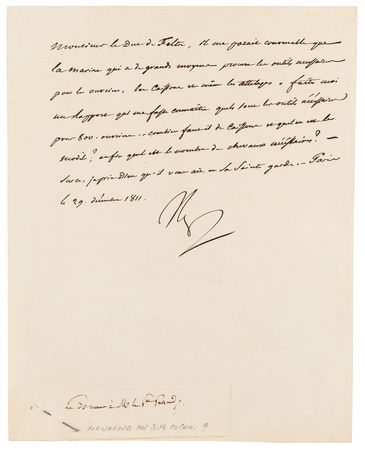 Monsieur le Duc de Feltre, il me parait convenable que
la marine qui a de grands moyens procure les outils nécessaires
pour les ouvriers, les Caissons et même les attelages. faites moi
un rapport qui me fasse connaître quels sont les outils nécessaires
pour 800 ouvriers. combien faut-il de Caissons et quel en est le
modèle? enfin quel est le nombre de chevaux nécessaires? —
Sur ce, je prie Dieu qu'il vous ait en sa Sainte garde. — Paris
le 29. décembre 1811.
Np
Le 30 à Mr le
FORWARDED THE 30th